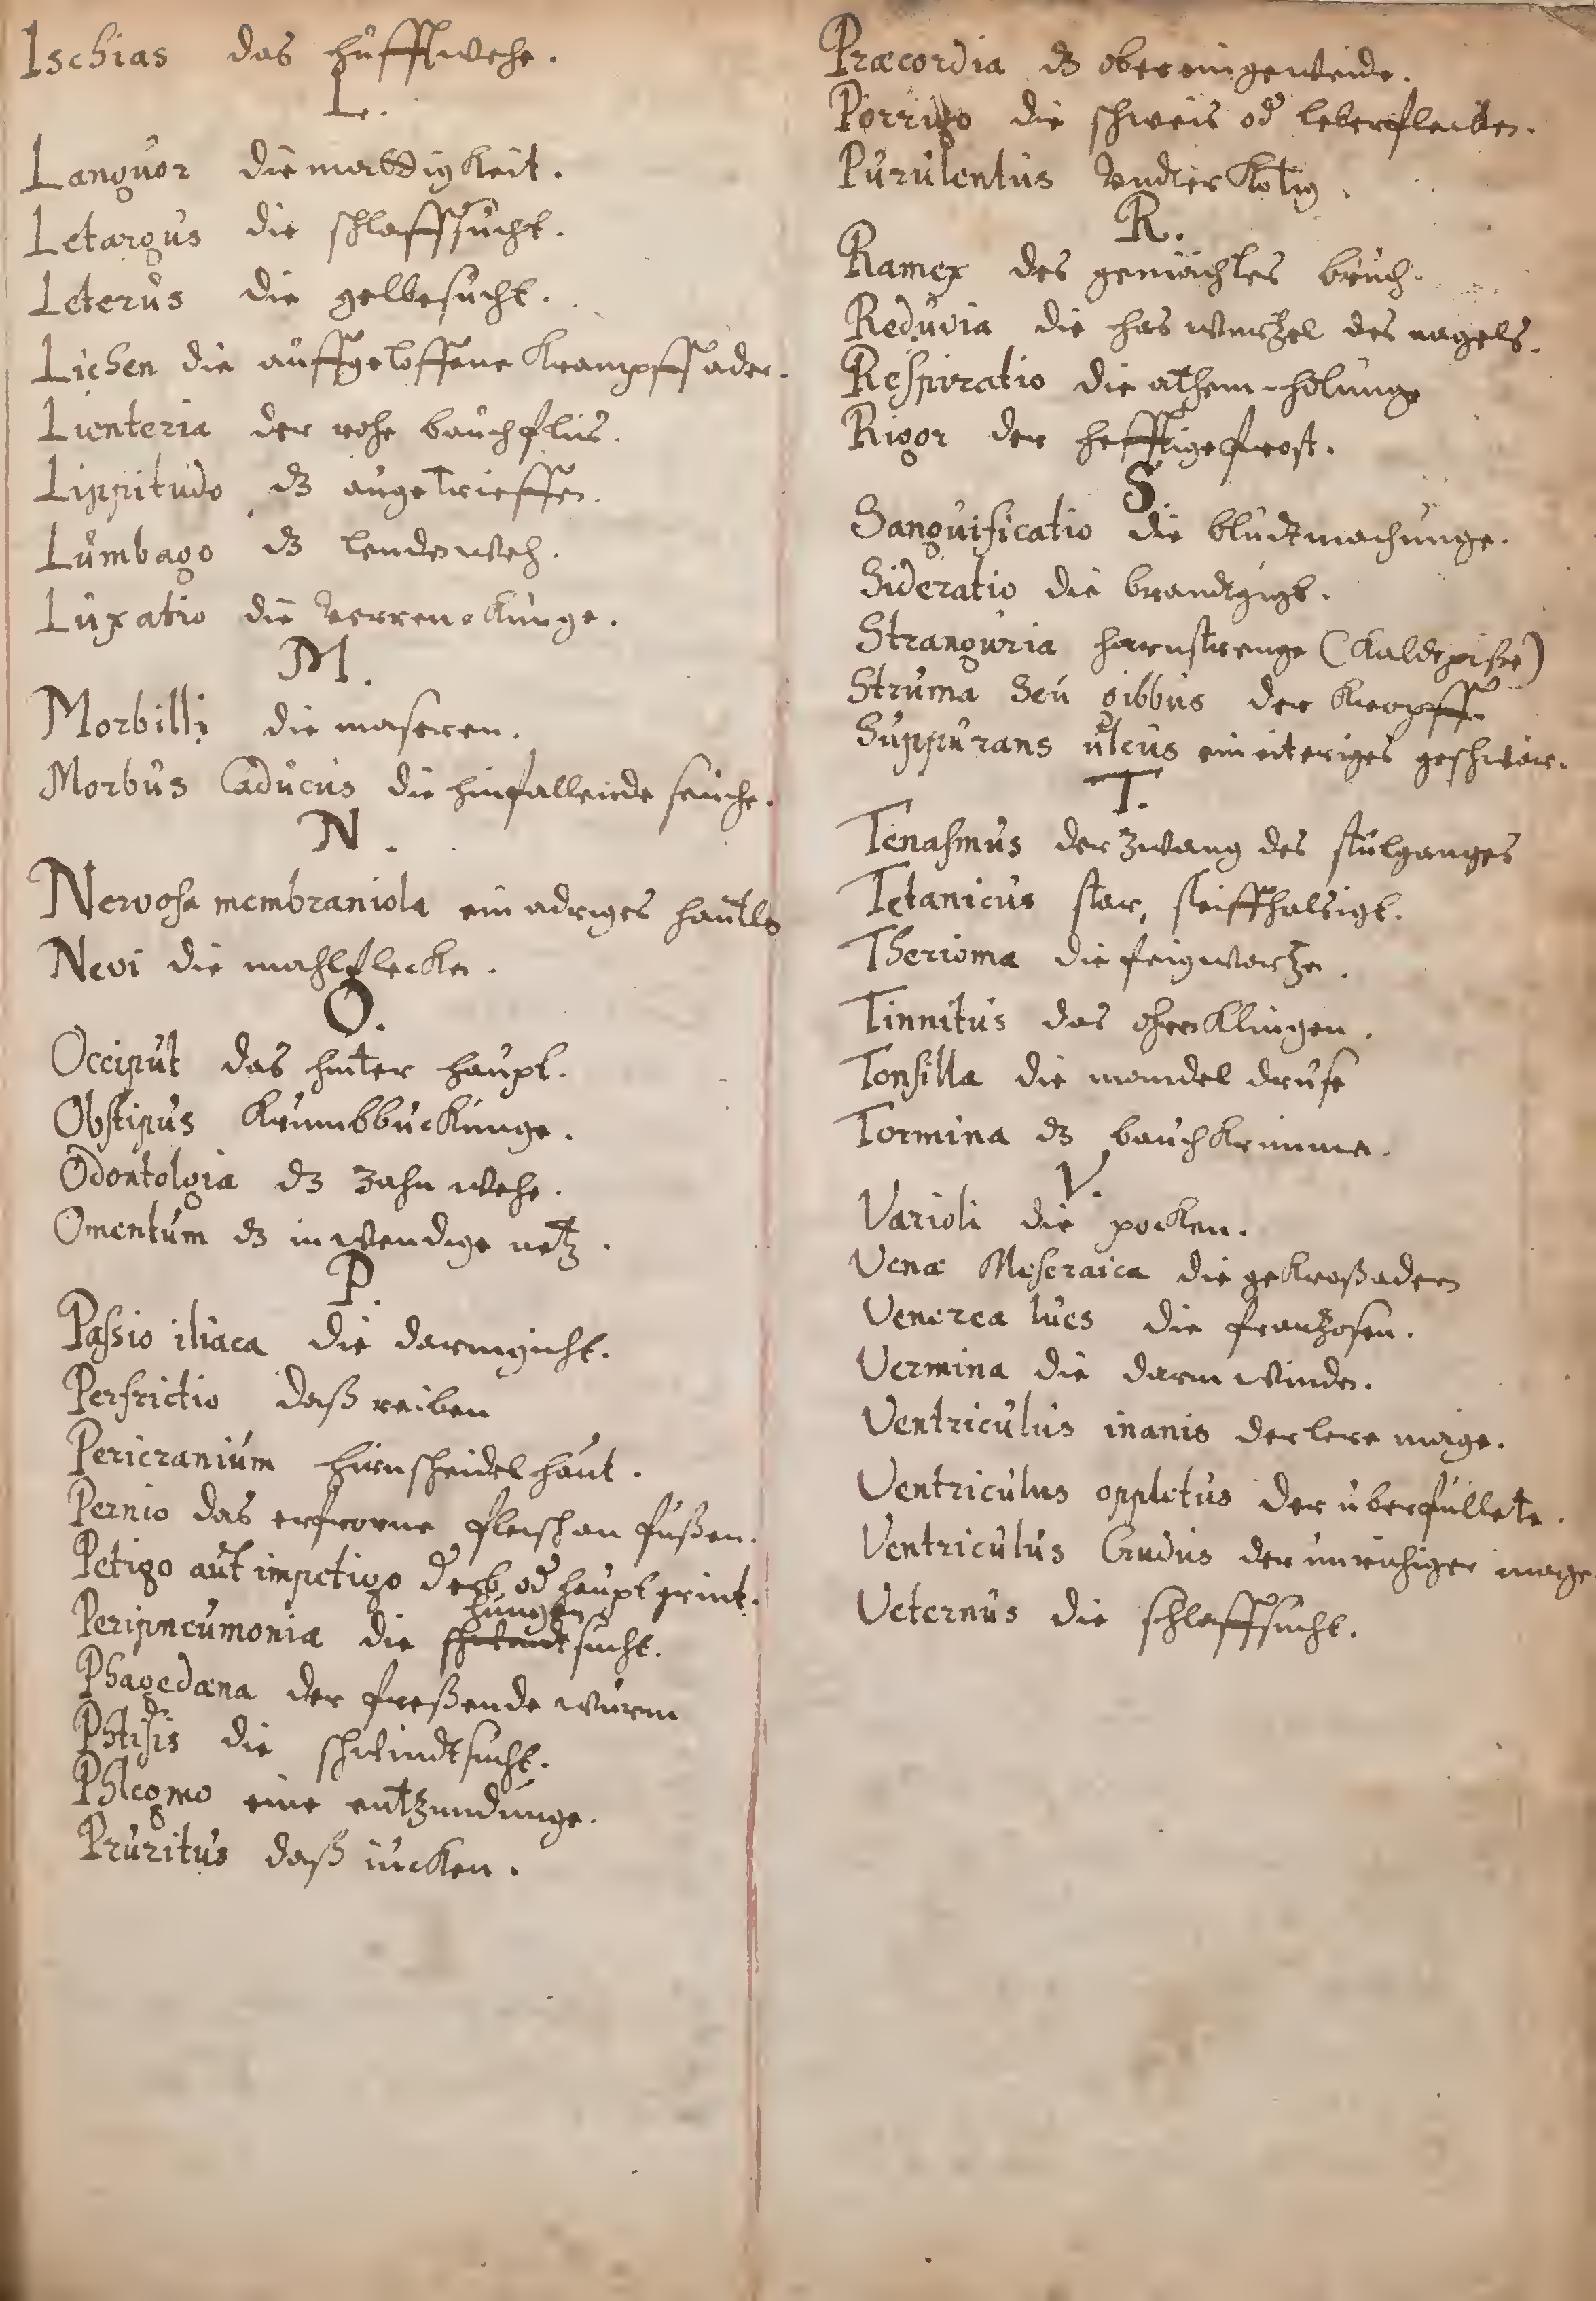 Ischias das hufftwehe.
L.
Languor die mattigkeit.
Letargus die schlaffsucht.
Icterus die gelbesucht.
Lichen die auffgeloffene krampffader.
Lienteria der rohe bauchflus.
Lippitudo dz augetrieffen.
Lumbago dz lendeweh.
Luxatio die verrenckunge.
M.
Morbilli die maseren.
Morbus Caducus die hinfallende seuche.
N.
Nervosa membraniola ein adriges hautle
Nevi die mahlflecken.
O.
Occiput das hinter haupt.
Obstipus krumbbuckunge.
Odontolgia dz zahn wehe.
Omentum dz inwendige netz.
P.
Passio iliaca die darmgicht.
Perfrictio daß reiben
Pericranium hirnscheidel haut.
Pernio das erfrorne fleisch an fußen.
Petigo aut impetigo od haupt grint.
lungen
Peripneumonia die schwindtsucht.
Phagedæna der freßende wurm
Phtisis die schwindtsucht.
Phlegmo eine entzundunge.
Pruritus daß iucken.
Præcordia dz obereingeweide.
Porrigo die schweis od leberflecken.
Purulentus kotig.
R.
Ramex des gemächtes bruch.
Reduvia die wurtzel des nagels.
Respiratio die athem-holunge
Rigor der hefftigefrost.
S.
Sanguificatio die bludtmachunge.
Sideratio die brandtgigt.
Stranguria harnstrenge (Kaldepiße)
Struma Seu gibbus der kropff.
Suppurans ulcus ein eiteriges geschwär.
T.
Tenasmus der zwang des stulganges
Tetanicus star, steiffhalsigt.
Therioma die feigwartze.
Tinnitus das ohrenklingen.
Tonsilla die mandel druse
Tormina dz bauchkrimmen.
V.
Varioli die pocken.
Venæ Meseraica die gekroßadern
Venerea lues die frantzosen.
Vermina die darm winde.
Ventriculus inanis der lere mage.
Ventriculus oppletus der uberfullete.
Ventriculus Crudus der unruhiger mage
Veternus die schlaffsucht.